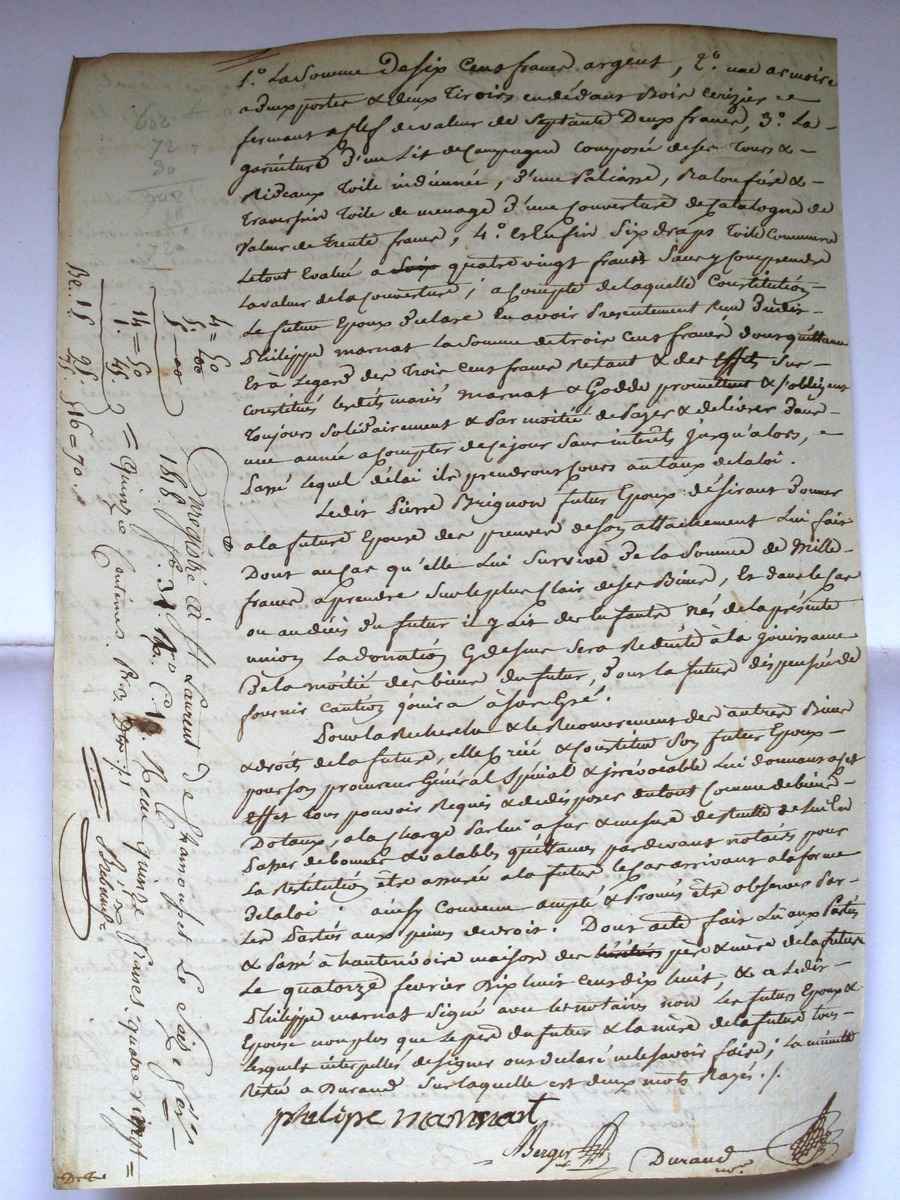 1.º La Somme de six Cens francs argent, 2.º une armoire
a deux portes & deux tiroirs en dédans Bois Cerizier se
fermant a clef de valeur de Septante Deux francs, 3.º La
garniture d'un Lit de Campagne Composée de ses tours &
Rideaux toile indiennée, d'une Paliasse,
traversin toile de menage d'une Couverture de Catalogne de
Valeur de trente francs, 4.º et Enfin Six draps toile Commune
le tout Evalué a quatre vingt francs Sauf y Comprendre
la valeur de la Couverture; a Compte de laquelle Constitution
Le futur Epoux déclare En avoir Presentement Reçu dudit
Philippe marnat La Somme de trois Cens francs dont quittance
Et à Legard des Trois Cens francs Restant & des Effets Sus
Constitués lesdits mariés marnat & Godde promettent & s'obligent
toujours Solidairement & Par moitié de Payer & delivrer dans
une année a Compter de ce jour Sans interêts jusqu'alors,
Passé Lequel délai ils prendront Cours au taux de la loi.
Ledit Pierre Brignon futur Epoux désirant donner
a la future Epouse des preuves de son attachement Lui fait
Dont au Cas qu'elle Lui Survive de la Somme de Mille
francs a prendre Sur le plus Clair de ses Biens, Et dans le Cas
ou au décés du futur il y ait des Enfants nés de la présente
union La donation Cydessus Sera Reduite à la jouissance
de la moitié des biens du futur, dont la future dispensée de
fournir Caution jouira à son Gré.
Pour la Recherche & le Recouvrement des autres Biens
& droits de la future, elle Créé & Constitue Son futur Epoux
pour Son procureur Général Spécial & irrévocable Lui donnant a cet
Effet tous pouvoirs Requis & de disposer du tout Comme de biens
Dotaux, a la Charge Par lui a fur & mesure de
Passer de bonnes & valables quittances pardevant notaires pour
La Restitution être assurée a la future le Cas arrivant a la forme
de la loi; ainsy Convenu accepté & Promis être observer Par
Les Parties aux peines de droit: Dont acte fait Lû aux Parties
& Passé à hauterivoire maison des père & mère de la future
Le quatorze fevrier Dix huit cens dix huit, & a Ledit
Philippe marnat Signé avec les notaires non Les futurs Epoux &
Epouse non plus que Le père du futur & la mère de la future tous
Lesquels interpellés de signer ont déclaré ne le savoir faire; La minute
Restée a Durand Sur laquelle est deux mots Rayés./.
philippe marnnat
Berger
Durand
602
72
30
720
4 = 50
5 = 00
14 = 50
1. 45.
16 = 70.
Enregistré à St Laurent de Chamousset Le Seize fev.
1818 f.º 31 R.º C. 1 Reçu quinze francs, quatre vingt
quinze Centimes.